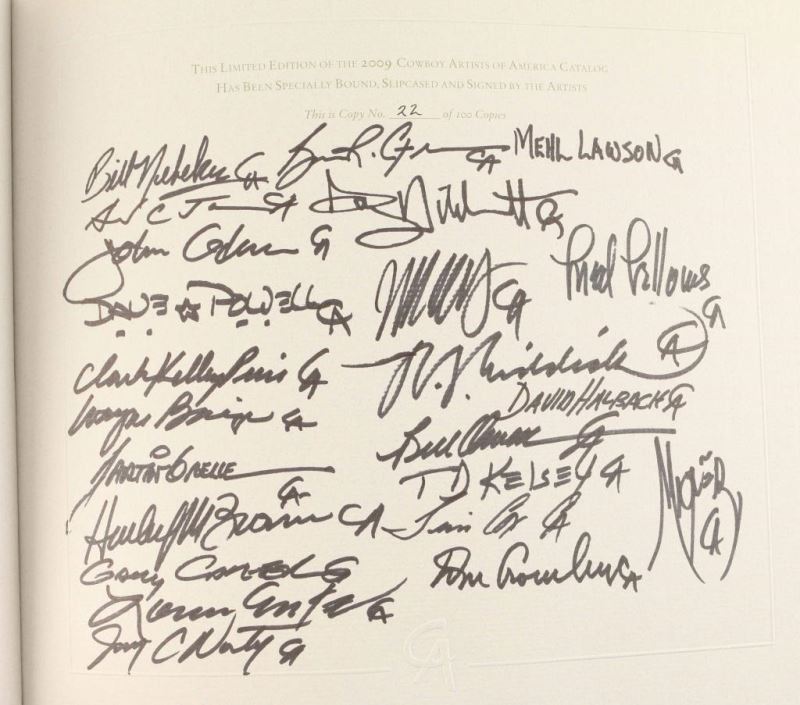 THIS LIMITED EDITION OF THE 2009 COWBOY ARTISTS OF AMERICA CATALOG
HAS BEEN SPECIALLY BOUND, SLIPCASED AND SIGNED BY THE ARTISTS
This is Copy No. 22 of 100 Copies
Bill Nebeker CA
CA
MEHL LAWSON CA
CA
CA
John Coleman CA
CA
Fred Fellows CA
DAVE POWELL CA
Clark Kelley Price CA
R.S. Riddick CA
DAVID HALBACK CA
Wayne Baize CA
Bill Owen CA
Martin Grelle CA
T D KELSEY CA
Harley Brown CA
Tim Cox CA
CA
Gary CARTER CA
Tom Browning CA
Loren Entz CA
CA
CA